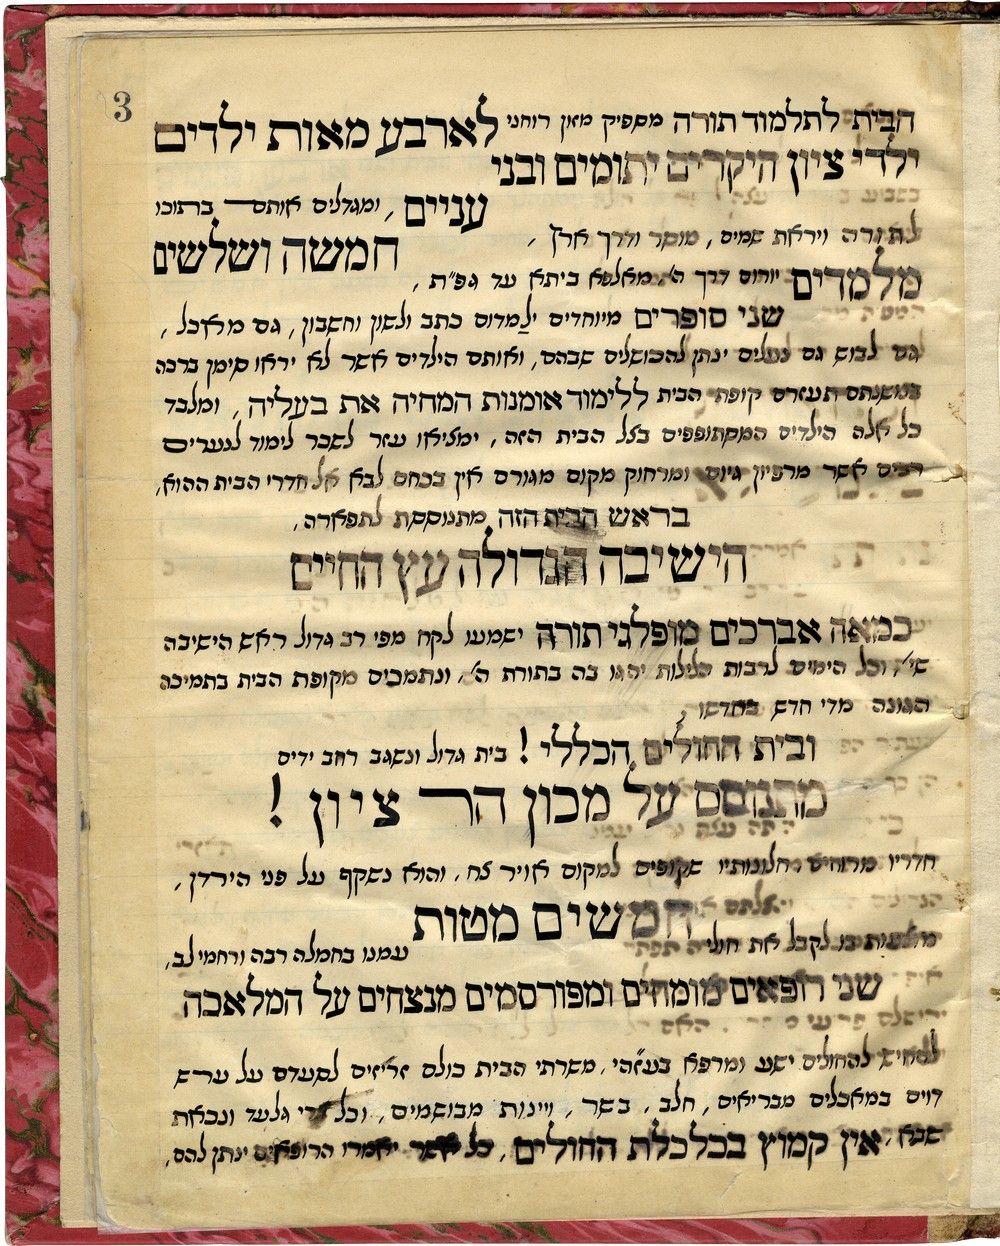 3
הבית לתלמוד תורה מספיק מזון רוחני לארבע מאות ילדים
ילדי ציון היקרים יתומים ובני
עניים, ומגדלים אותם בתוכו
לתורה ויראת שמים, מוסר ודרך ארץ,
חמשה ושלשים
מלמדים יורום דרך ה', מאלפא ביתא עד גפ״ת,
שני סופרים מיוחדים ילַמדום כתב ולשון וחשבון, גם מאכל,
גם לבוש גם נעלים ינתן להכושלים שבהם, ואותם הילדים אשר לא יראו סימן ברכה
במשנתם תעזרם קופת הבית ללימוד אומנות המחיה את בעליה, ומלבד
כל אלה הילדים המסתופפים בצל הבית הזה, ימציאו עזר לשכר לימוד לנערים
רבים אשר מרפיון גיום ומרחוק מקום מגורם אין בכחם לבא אל חדרי הבית ההוא,
בראש הבית הזה מתנוססת לתפארה,
הישיבה הגדולה עץ החיים
כמאה אברכים מופלגי תורה ישמעו לקח מפי רב גדול ראש הישיבה
שי', וכל הימים לרבות הלילות יהגו בה בתורת ה', ונתמכים מקופת הבית בתמיכה
הגונה מדי חדש בחדשו,
ובית החולים הכללי! בית גדול ונשגב רחב ידים
מתנוסס על מכון הר ציון!
חדריו מרוחים חלונותיו שקופים למקום אויר צח, והוא נשקף על פני הירדן,
חמשים מטות
בו לקבל את חולי עמנו בחמלה רבה ורחמי לב,
שני רופאים מומחים ומפורסמים מנצחים על המלאכה
להחיש להחולים ישע ומרפא בעז״הי, משרתי הבית כולם זריזים לסעדם על ערש
דוים במאכלים מבריאים, חלב, בשר, ויינות מבושמים, וכל צרי גלעד ונכאת
שבא, אין קמוץ בכלכלת החולים, כל אשר יאמרו הרופאים ינתן להם,